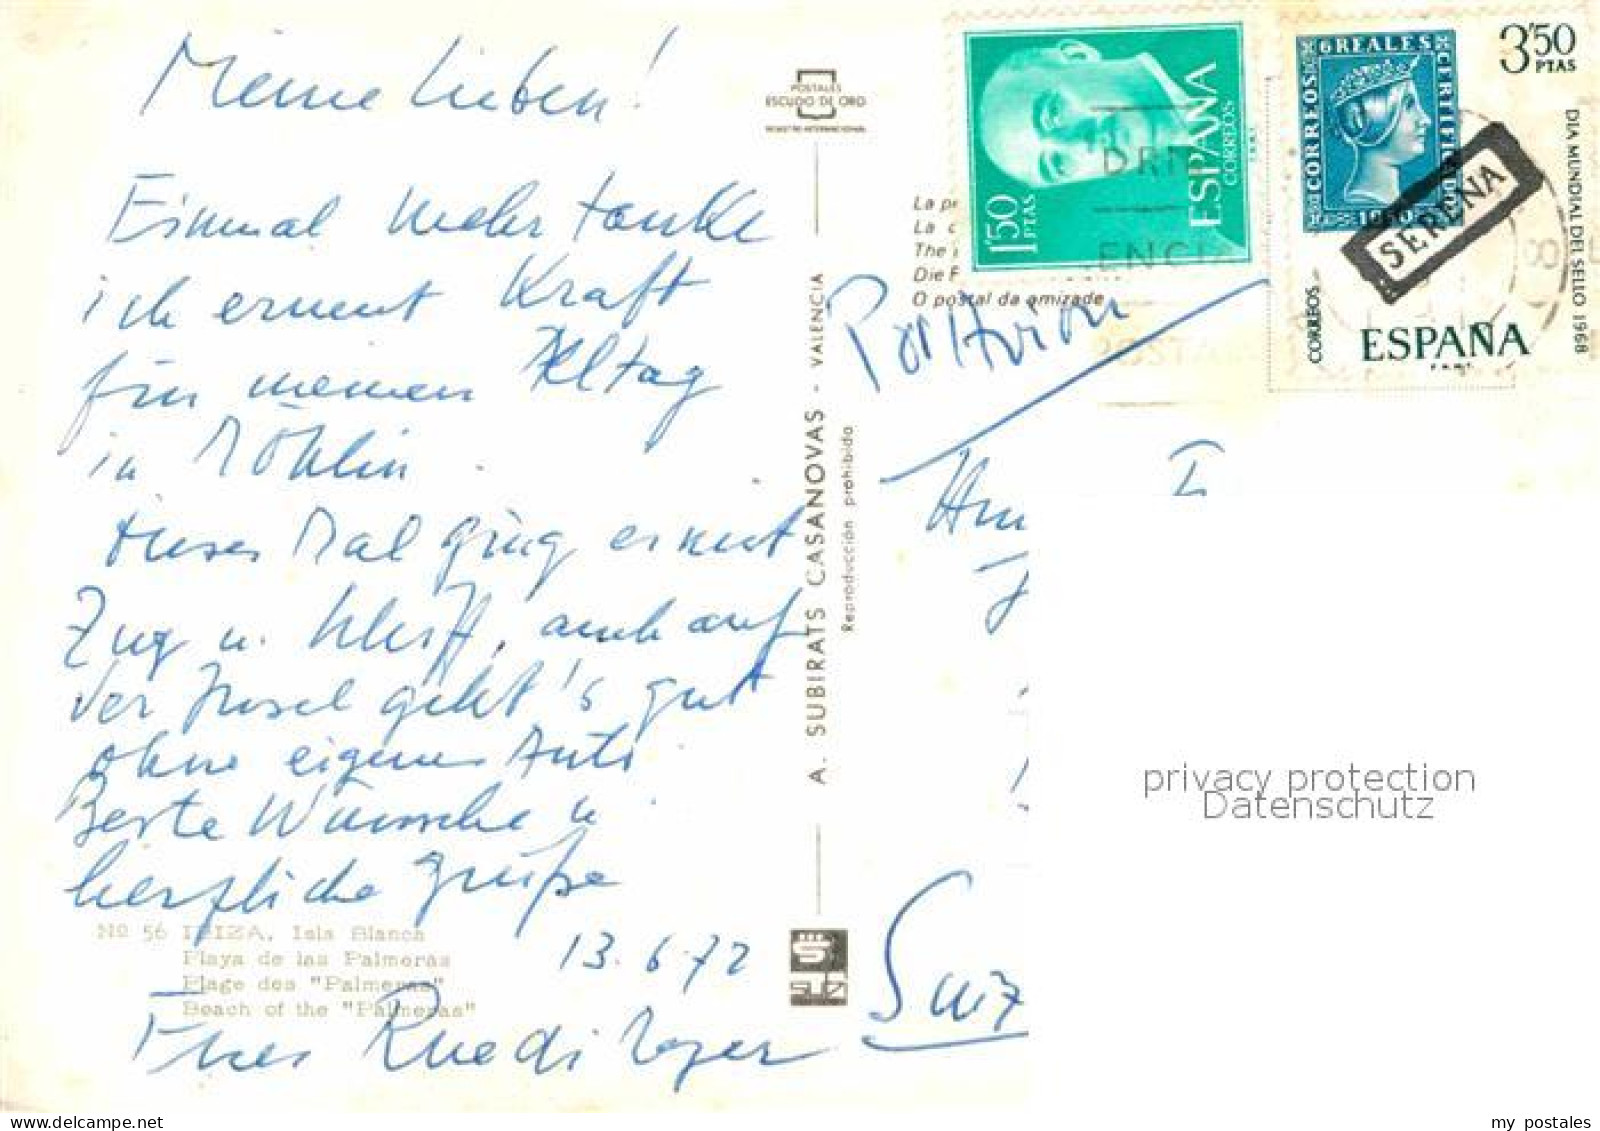 Meine Lieben!
Einmal mehr tanke
ich erneut Kraft
für meinen Alltag
in Möhlin.
Dieses Mal ging es mit
Zug u. Schiff, auch auf
der Insel geht's gut
ohne eigenes Auto
Beste Wünsche u.
herzliche Grüsse
13.6.72
Euer Ruedi
No 56 IBIZA. Isla Blanca
Playa de las Palmeras
Plage des "Palmeras"
Beach of the "Palmeras"
POSTALES
ESCUDO DE ORO
REGISTRO INTERNACIONAL
A. SUBIRATS CASANOVAS - VALENCIA
Reproducción prohibida
La
La
The
Die
O postal da amizade
Par Avion
1'50 PTAS
ESPAÑA
CORREOS
6 REALES
CORREOS
CERTIFICADO
3'50
PTAS
DIA MUNDIAL DEL SELLO 1968
CORREOS
ESPAÑA
F.N.M.T.
SERENA
privacy protection
Datenschutz
my postales